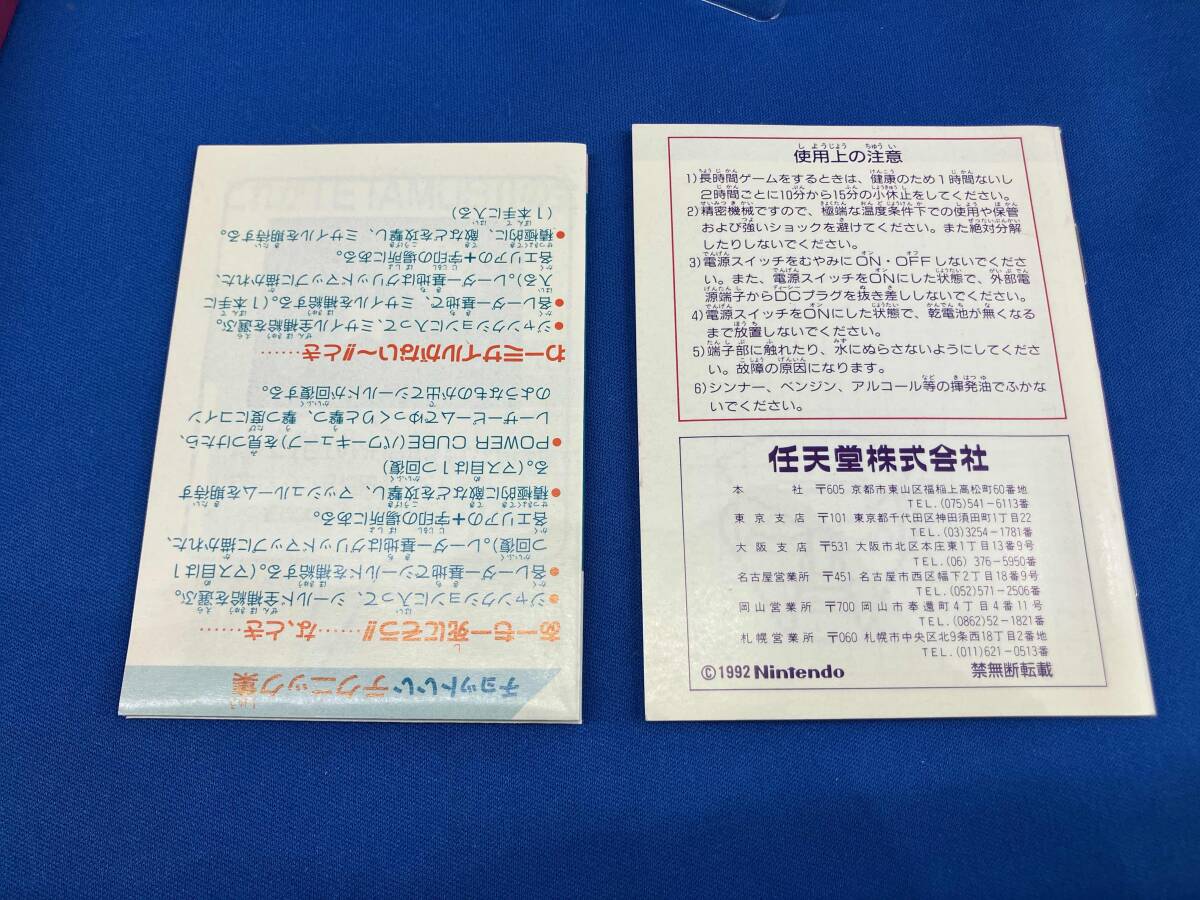 チョットいいテクニック集
あーもー死にそう!!………な、とき
●ジャンクションに入って、シールド全補給を選ぶ。
●各レーダー基地でシールドを補給する。(マス目は1
つ回復)。レーダー基地はグリッドマップに描かれた、
各エリアの+字印の場所にある。
●積極的に敵などを攻撃し、マッシュルームを期待す
る。(マス目は1つ回復)
●POWER CUBE(パワーキューブ)を見つけたら、
レーザービームでゆっくりと撃つ、撃つ度にコイン
のようなものが出てシールドが回復する。
わーミサイルがない〜!!とき………
●ジャンクションに入って、ミサイル全補給を選ぶ。
●各レーダー基地で、ミサイルを補給する。(1本手に
入る)。レーダー基地はグリッドマップに描かれた、
各エリアの+字印の場所にある。
●積極的に、敵などを攻撃し、ミサイルを期待する。
(1本手に入る)
使用上の注意
1)長時間ゲームをするときは、健康のため1時間ないし
2時間ごとに10分から15分の小休止をしてください。
2)精密機械ですので、極端な温度条件下での使用や保管
および強いショックを避けてください。また絶対分解
したりしないでください。
3)電源スイッチをむやみにON・OFFしないでくださ
い。また、電源スイッチをONにした状態で、外部電
源端子からDCプラグを抜き差ししないでください。
4)電源スイッチをONにした状態で、乾電池が無くなる
まで放置しないでください。
5)端子部に触れたり、水にぬらさないようにしてくださ
い。故障の原因になります。
6)シンナー、ベンジン、アルコール等の揮発油でふかな
いでください。
任天堂株式会社
本社 〒605 京都市東山区福稲上高松町60番地
TEL.(075)541-6113番
東京支店 〒101 東京都千代田区神田須田町1丁目22
TEL.(03)3254-1781番
大阪支店 〒531 大阪市北区本庄東1丁目13番9号
TEL.(06)376-5950番
名古屋営業所 〒451 名古屋市西区幅下2丁目18番9号
TEL.(052)571-2506番
岡山営業所 〒700 岡山市奉還町4丁目4番11号
TEL.(0862)52-1821番
札幌営業所 〒060 札幌市中央区北9条西18丁目2番地
TEL.(011)621-0513番
©1992 Nintendo 禁無断転載